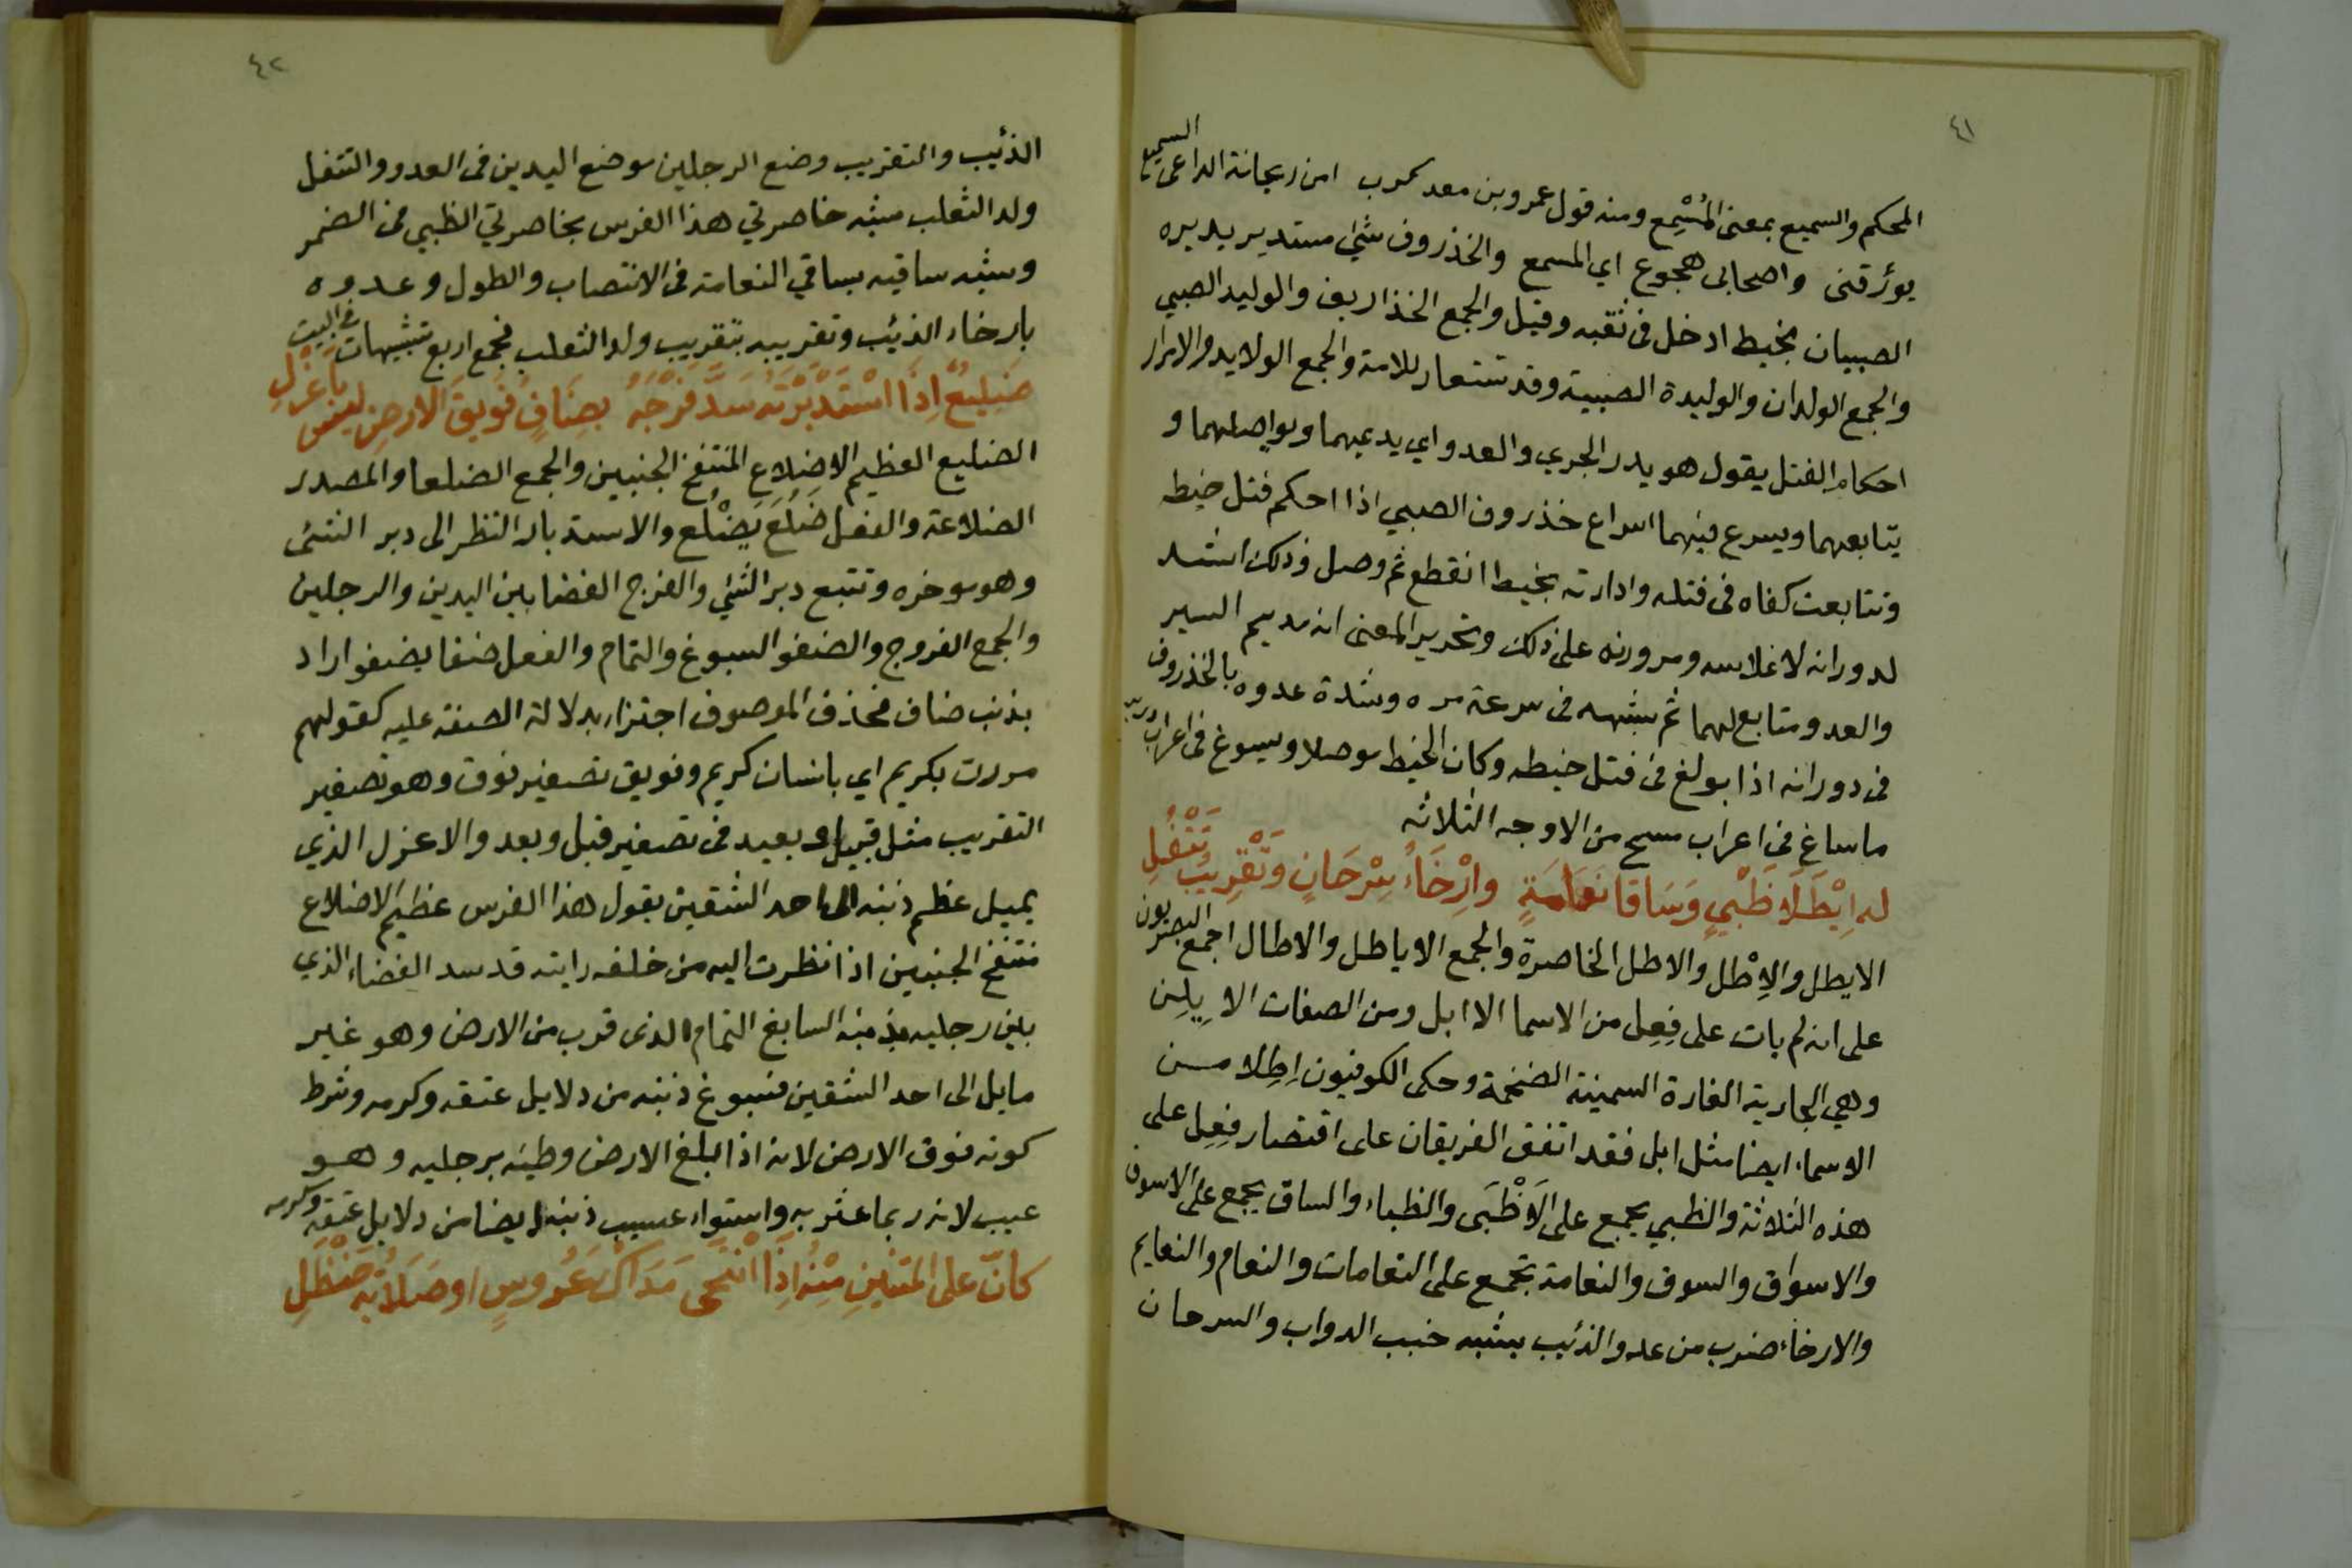 ٤١
المحكم والسميع بمعنى المُسْمِع ومنه قول عمرو بن معد كرب امن ريحانة الداعى السميع
يؤرقنى واصحابى هجوع اي المسمع والخذروف شئ مستدير يديره
الصبيان بخيط ادخل فى ثقبه وقيل والجمع الخذاريف والوليد الصبي
والجمع الولدان والوليدة الصبية وقد تستعار للامة والجمع الولايد والامرار
احكام الفتل يقول هو يدر الجري والعدو اي يديمهما ويواصلهما و
يتابعهما ويسرع فيهما اسراع خذروف الصبي اذا احكم فتل خيطه
وتتابعت كفاه فى فتله وادارته بخيط انقطع ثم وصل وذلك اشد
لدورانه لانملاسه ومرورنه على ذلك وتحرير المعنى انه مديم السير
والعدو متابع لهما ثم شبهه فى سرعة مره وشدة عدوه بالخذروف
فى دورانه اذا بولغ فى فتل خيطه وكان الخيط موصلا ويسوغ فى اعراب درير
ما ساغ فى اعراب مسح من الاوجه الثلاثه
له اِيْطَلَا ظَبْيٍ وَسَاقَا نَعَامَةٍ وارْخَاءُ سِرْحَانٍ وَتَقْرِيبُ تَتْفُلِ
الايطل والاِطْل والاطل الخاصرة والجمع الاياطل والاطال اجمع البصريون
على انه لم يات على فِعِل من الاسما الا ابل ومن الصفات الا بِلِز
وهي الجارية الفارة السمينة الضخمة وحكى الكوفيون اِطِلا من
الاسماء ايضا مثل ابل فقد اتفق الفريقان على اقتصار فِعِل على
هذه الثلاثة والظبي يجمع على الاَظْبَى والظباء والساق يجمع على الاسوق
والاسواق والسوق والنعامة تجمع على النعامات والنعام والنعايم
والارخاء ضرب من عدو الذئب يشبه خبب الدواب والسرحان
٤٢
الذئب والتقريب وضع الرجلين موضع اليدين فى العدو والتتفل
ولد الثعلب شبه خاصرتي هذا الفرس بخاصرتي الظبي فى الضمر
وشبه ساقيه بساقي النعامة فى الانتصاب والطول وعدوه
بارخاء الذئب وتقريبه بتقريب ولد الثعلب فجمع اربع تشبيهات فى البيت
ضَلِيعٌ اِذَا اسْتَدْبَرْتَهُ سَدَّ فَرْجَهُ بِضَافٍ فُوَيقَ الارضِ ليس باَعْزَلِ
الضليع العظيم الاضلاع المنتفخ الجنبين والجمع الضلعا والمصدر
الضلاعة والفعل ضَلُعَ يَضْلُع والاستدبار النظر الى دبر الشئ
وهو موخره وتتبع دبر الشئ والفرج الفضا بين اليدين والرجلين
والجمع الفروج والضفو السبوغ والتمام والفعل ضفا يضفو اراد
بذنب ضاف فحذف الموصوف اجتزاء بدلالة الصفة عليه كقولهم
مررت بكريم اي بانسان كريم وفويق تصغير فوق وهو تصغير
التقريب مثل قبيل وبعيد فى تصغير قبل وبعد والاعزل الذي
يميل عظم ذنبه الى احد الشقين يقول هذا الفرس عظيم الاضلاع
منتفخ الجنبين اذا نظرت اليه من خلفه رايته قد سد الفضاء الذي
بين رجليه بذنبه السابغ التمام الذى قرب من الارض وهو غير
مايل الى احد الشقين فسبوغ ذنبه من دلايل عتقه وكرمه وشرط
كونه فوق الارض لانه اذا بلغ الارض وطئه برجليه وهو
عيب لانه ربما عثر به واستواء عسيب ذنبه ايضا من دلايل عتقه وكرمه
كانّ على المتنينِ مِنْهُ اِذَا انْتَحَى مَدَاكُ عَرُوسٍ او صَلَايَةُ حَنْظَلِ